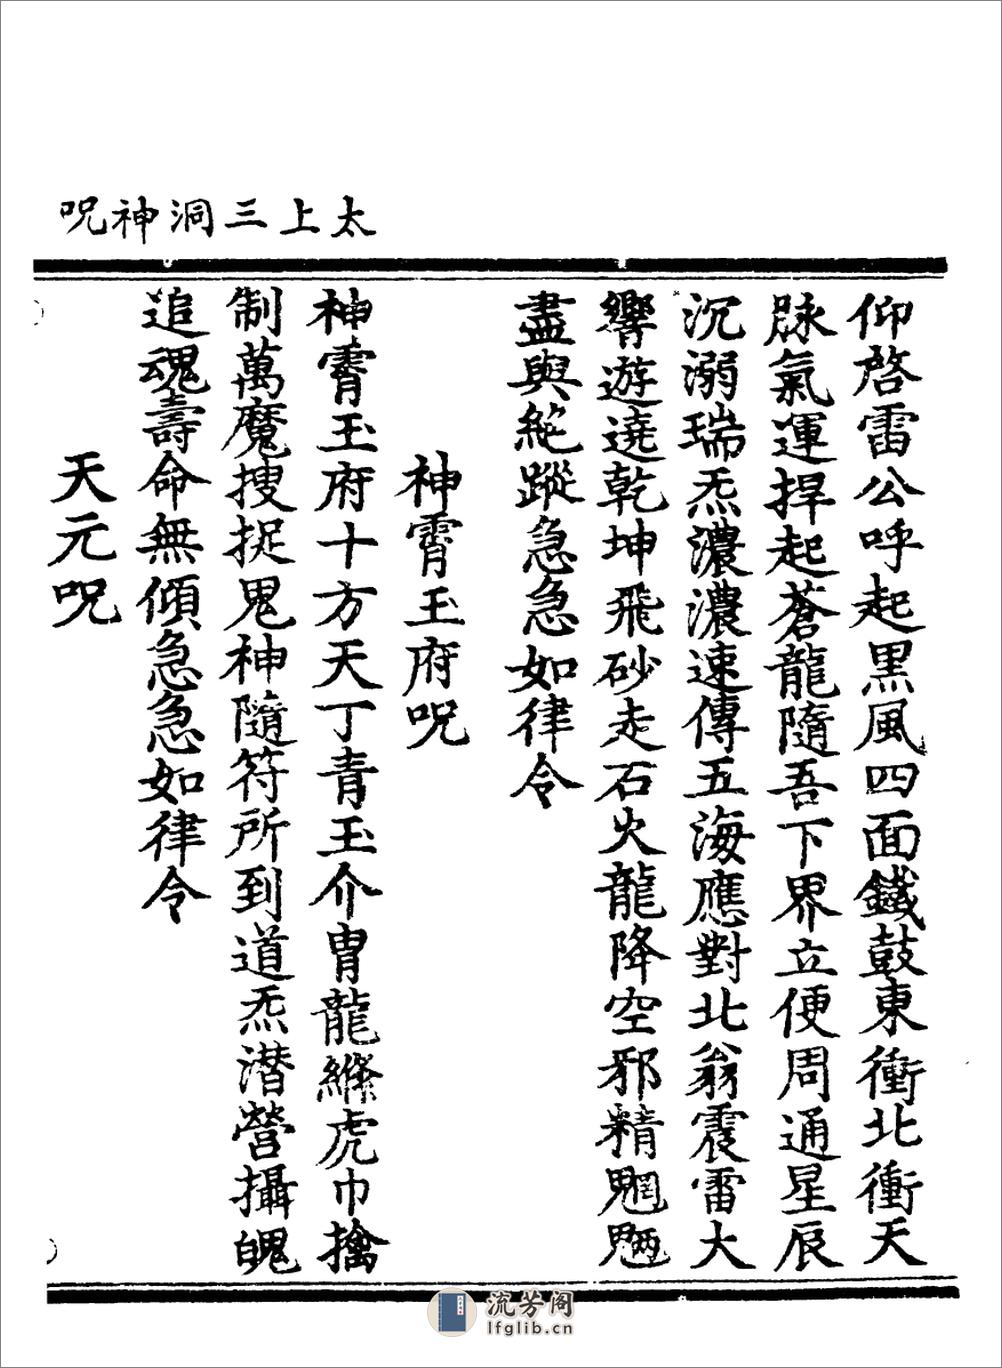 太上三洞神呪
仰啓雷公呼起黑風四面鐵鼓東衝北衝天
脉氣運捍起蒼龍隨吾下界立便周通星辰
沉溺瑞炁濃濃速傳五海應對北翁震雷大
響遊遶乾坤飛砂走石火龍降空邪精魍魎
盡與絕蹤急急如律令
神霄玉府呪
神霄玉府十方天丁青玉介胄龍縧虎巾擒
制萬魔搜捉鬼神隨符所到道炁潛營攝魄
追魂壽命無傾急急如律令
天元呪
流芳阁
lfglib.cn